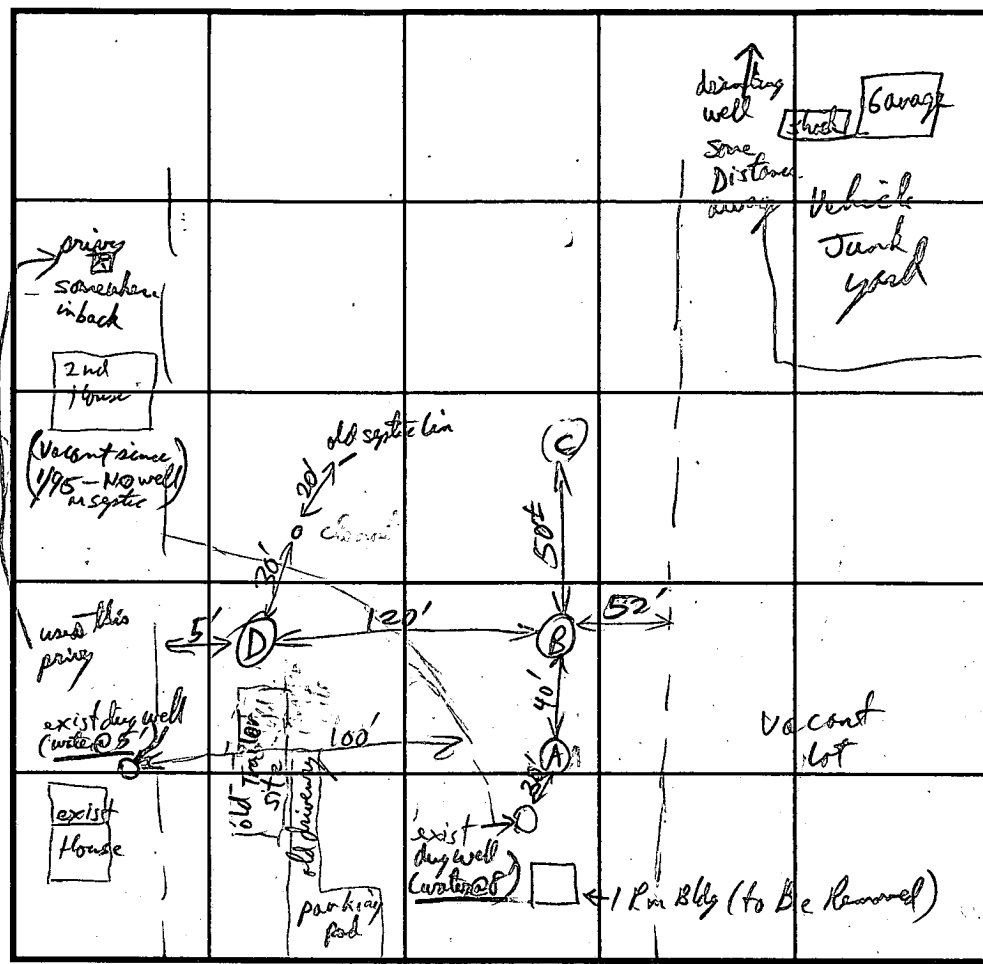 drinking
well
Some
Distance
away
shed
Garage
Vehicle
Junk
yard
privy
somewhere
in back
2nd
House
(Vacant since
1/95 - No well
or septic)
old septic
20'
C
50±
30'
52'
uses this
privy
5'
D
120'
B
40'
exist dug well
(water @ 5')
100'
A
30'
Vacant
lot
old Trailer
site
old driveway
exist
House
exist
dug well
(water @ 8')
parking
pad
1 Rm Bldg (to Be Removed)